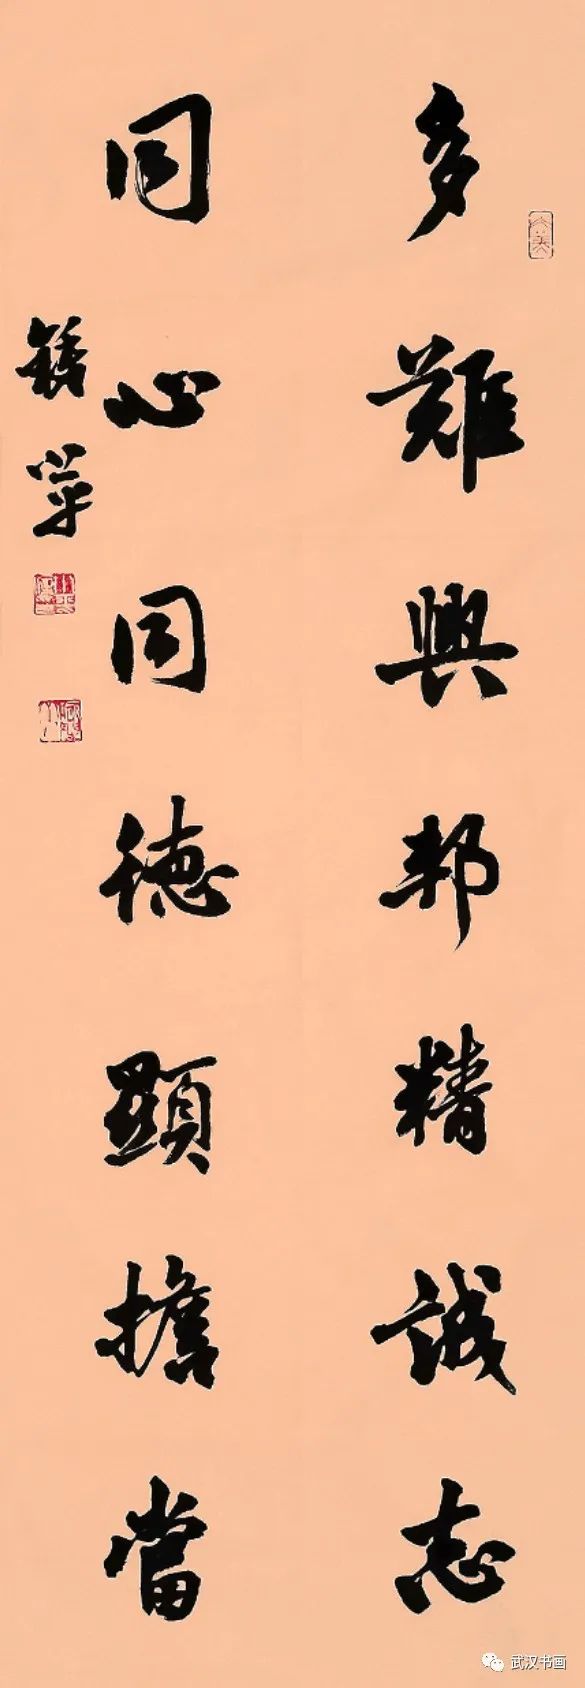 多難興邦精誠志
同心同德顯擔當
武汉书画